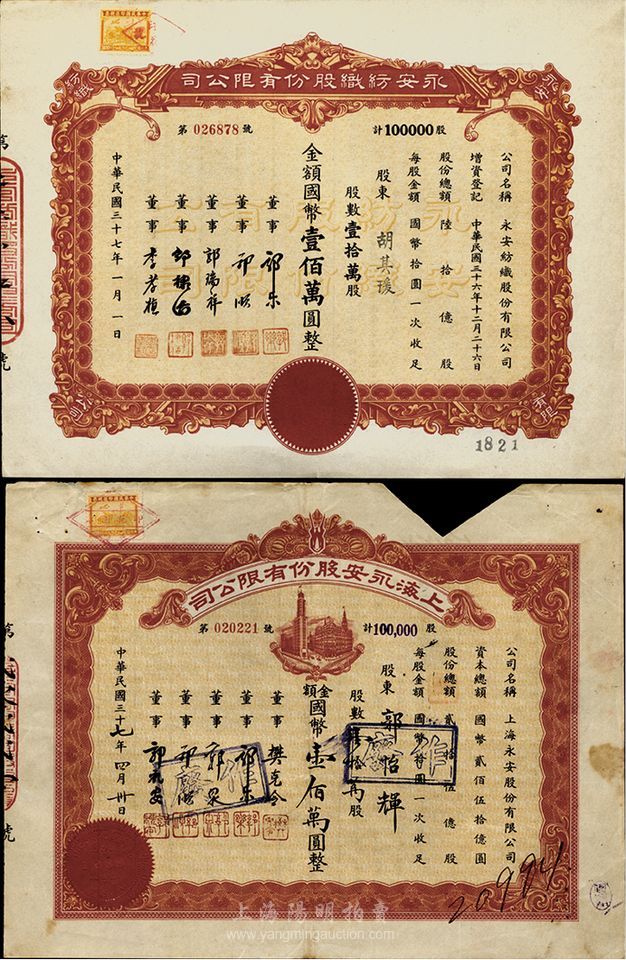 永安紡織股份有限公司
永安
紡織
第 026878 號
計 100000 股
公司名稱 永安紡織股份有限公司
增資登記 中華民國三十六年十二月二十六日
股份總額 陸拾億股
每股金額 國幣拾圓一次收足
股東 胡其瑗
股數壹拾萬股
金額國幣壹佰萬圓整
董事 郭樂
董事 郭順
董事 郭瑞祥
董事 郭棣活
董事
中華民國三十七年一月一日
有限
公司
1821
上海永安股份有限公司
第 020221 號
計 100,000 股
公司名稱 上海永安股份有限公司
資本總額 國幣貳佰伍拾億圓
股份總額 貳拾伍億股
每股金額 國幣拾圓一次收足
股東 郭怡輝
股數壹拾萬股
金額國幣壹佰萬圓整
董事
董事 郭樂
董事 郭泉
董事 郭順
董事
中華民國三十七年四月卅日
作廢
作廢
20994
第
號
第
號
上海陽明拍賣
www.yangmingauction.com